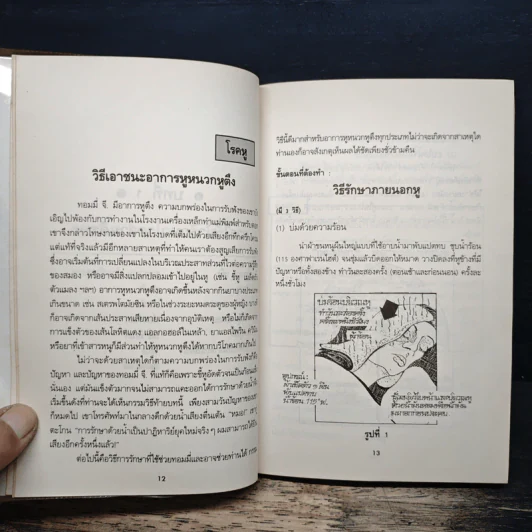 โรคหู
วิธีเอาชนะอาการหูหนวกหูตึง
ทอมมี่ จี. มีอาการหูตึง ความบกพร่องในการรับฟังของเขาบัง
เอิญไปพ้องกับการทำงานในโรงงานเครื่องเหล็กทำแม่พิมพ์สำหรับตอก
เขาจึงกล่าวโทษงานของเขาในโรงบดที่เต็มไปด้วยเสียงอึกทึกครึกโครม
แต่แท้ที่จริงแล้วมีอีกหลายสาเหตุที่ทำให้คนเราต้องสูญเสียการรับฟัง
ซึ่งอาจเริ่มต้นที่การเปลี่ยนแปลงในบริเวณประสาทส่วนที่ไวต่อความรู้สึก
ของสมอง หรืออาจมีสิ่งแปลกปลอมเข้าไปอยู่ในหู (เช่น ขี้หู เมล็ดถั่ว
ตัวแมลง ฯลฯ) อาการหูหนวกหูตึงอาจเกิดขึ้นหลังจากกินยาบางประเภท
เกินขนาด เช่น สเตรพโตมัยซิน หรือในช่วงระยะหมดระดูของผู้หญิง
ก็อาจเกิดจากเส้นประสาทเสียหายเนื่องจากอุบัติเหตุ หรือไม่ก็เกิดจาก
การแข็งตัวของเส้นโลหิตแดง แอลกอฮอล์ในเหล้า, ยาแอสไพริน
หรือยาที่เข้าสารหนูก็มีส่วนทำให้หูหนวกหูตึงได้หากบริโภคมากเกินไป
ไม่ว่าจะด้วยสาเหตุใดก็ตามความบกพร่องในการรับฟังก็เป็น
ปัญหา และปัญหาของทอมมี่ จี. ที่แท้ก็คือเพราะขี้หูอัดตัวจนเป็นก้อนแข็ง
นั่นเอง แต่มันแข็งตัวมากจนไม่สามารถแคะออกได้การรักษาด้วยน้ำ
เริ่มขึ้นดังที่ท่านจะได้เห็นกรรมวิธีท้ายบทนี้ เพียงสามวันปัญหาของเขา
ก็หมดไป เขาโทรศัพท์มาในกลางดึกด้วยน้ำเสียงตื่นเต้น "หมอ!"
ตะโกน "การรักษาด้วยน้ำเป็นปาฏิหาริย์ยุคใหม่จริงๆ ผมสามารถได้ยิน
เสียงอีกครั้งหนึ่งแล้ว!"
ต่อไปนี้คือวิธีการรักษาที่ใช้ช่วยทอมมี่และอาจช่วยท่านได้
12
วิธีนี้ดีมากสำหรับอาการหูหนวกหูตึงทุกประเภทไม่ว่าจะเกิดจากสาเหตุใด
ท่านเองก็อาจสังเกตุเห็นผลได้ชัดเพียงชั่วข้ามคืน
ขั้นตอนที่ต้องทำ :
วิธีรักษาภายนอกหู
(มี 3 วิธี)
(1) บ่มด้วยความร้อน
นำผ้าขนหนูผืนใหญ่แบบที่ใช้อาบน้ำมาพับแปดทบ ชุบน้ำร้อน
(115 องศาฟาเรนไฮต์) จนชุ่มแล้วบิดออกให้หมาด วางปิดลงที่หูข้างที่มี
ปัญหาหรือทั้งสองข้าง ทำวันละสองครั้ง (ตอนเช้าและก่อนนอน) ครั้งละ
หนึ่งชั่วโมง
บ่มร้อนบริเวณหู
ทำวันละสองครั้ง
ครั้งละหนึ่งชั่วโมง
ผ้าร้อน
อุปกรณ์ :
พับแปดทบ
รูปที่ 1
13